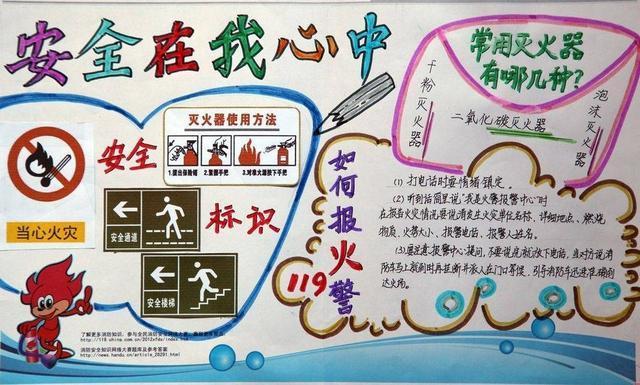 安全在我心中
常用灭火器
有哪几种?
干粉灭火器
二氧化碳灭火器
泡沫灭火器
灭火器使用方法
1.拔出保险销
2.压握手把
3.对准火源按下手把
安全
标识
当心火灾
安全通道
安全楼梯
如何报火警
119
(1) 打电话时要情绪镇定。
(2) 听到话筒里说"我是火警报警中心"时
在报告火灾情况要说清发生火灾单位名称、详细地点、燃烧
物质、火势大小、报警电话、报警人姓名。
(3) 要注意报警中心提问,不要说完就放下电话,
防车马上就到时再挂断 派人在门口等候,引导消防车迅速准确到
达火场。
了解更多消防知识,参与全民消防安全网络大赛
消防安全知识网络大赛题库及参考答案